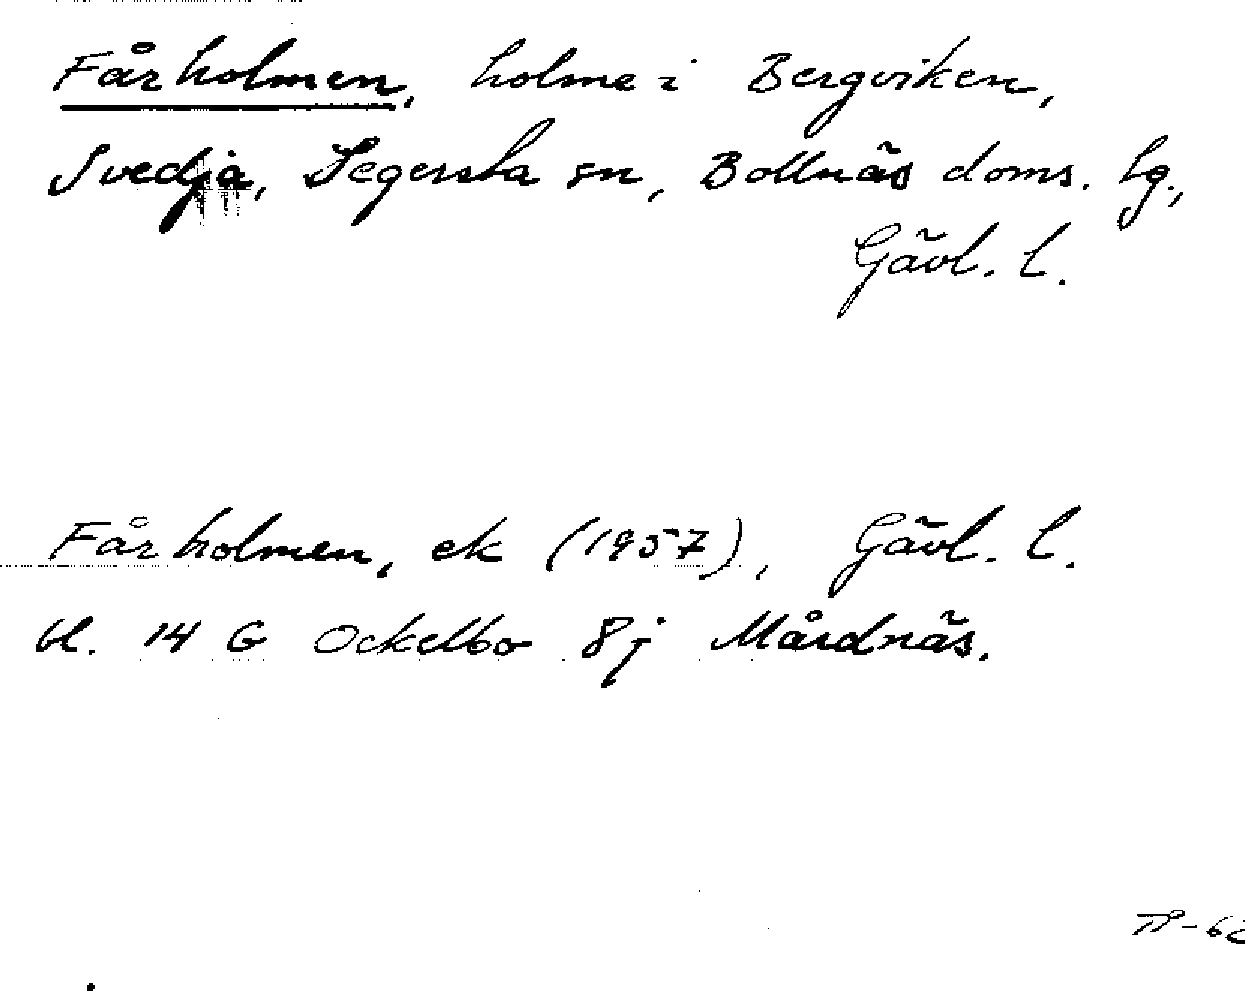 Fårholmen, holme i Bergviken,
Svedja, Segersta sn, Bollnäs doms. lg.,
Gävl. l.
Fårholmen, ek (1957), Gävl. l.
bl. 14 G Ockelbo 8j Mårdnäs.